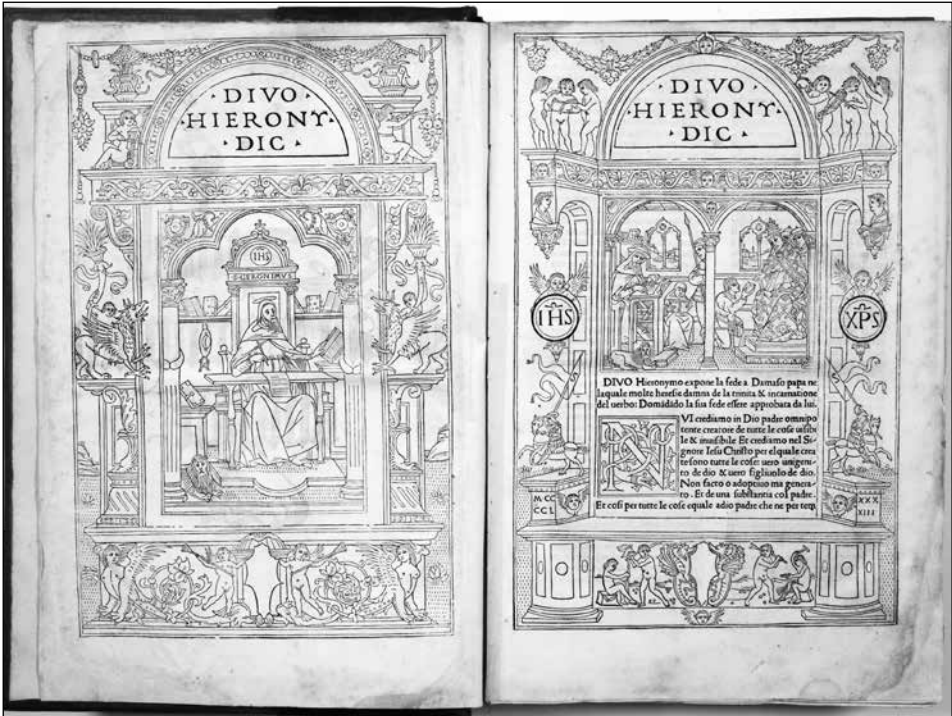 · DIVO ·
· HIERONY ·
DIC ·
IHS
S · GERONIMUS
· DIVO ·
· HIERONY ·
DIC ·
IHS
XPS
DIVO Hieronymo expone la fede a Damaso papa ne
laquale molte heresie damna de la trinita & incarnatione
del uerbo: Domādādo la sua fede essere approbata da lui.
NVI crediamo in Dio padre omnipo
tente creatore de tutte le cose uisibi
le & inuisibile Et crediamo nel Si-
gnore Iesu Christo per elquale crea
te sono tutte le cose: uero unigeni-
to de dio & uero figliuolo de dio.
Non facto o adoptiuo ma genera-
to. Et de una substantia col padre.
Et cosi per tutte le cose equale adio padre che ne per temp
M CC
CCL
XXX
XIII